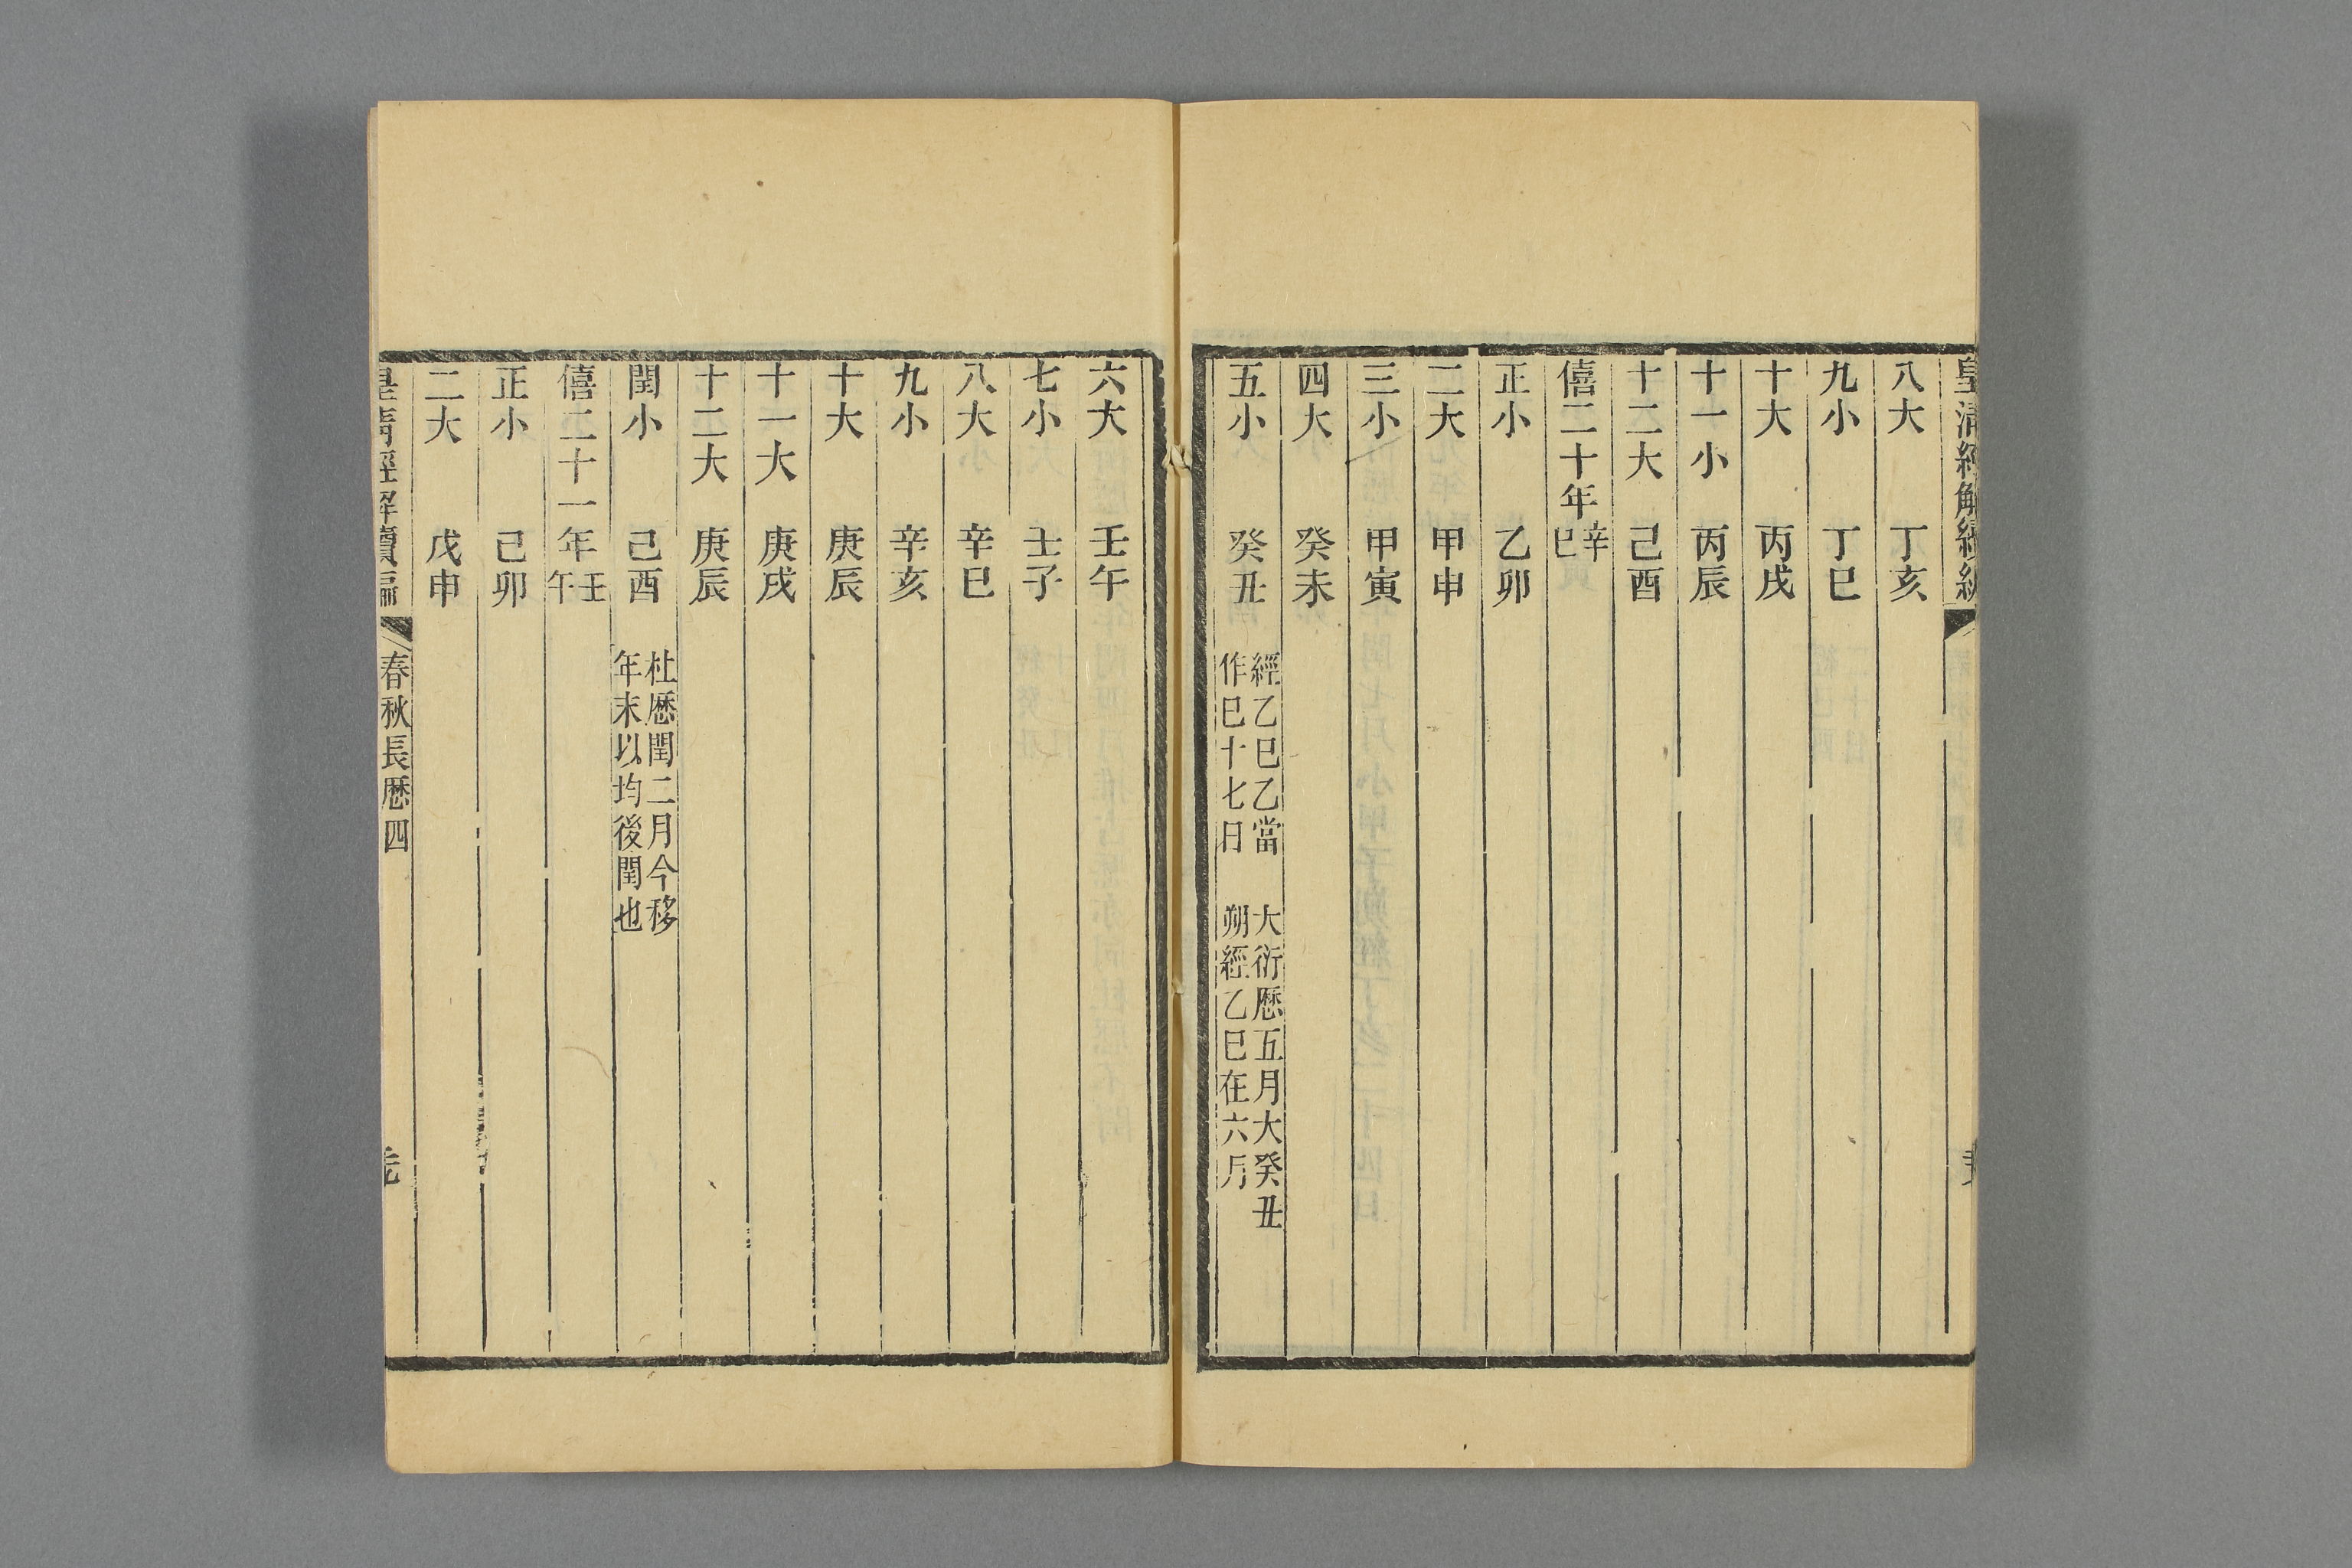 皇清經解續編
八大 丁亥
九小 丁巳
十大 丙戌
十一小 丙辰
十二大 己酉
僖二十年 辛巳
正小 乙卯
二大 甲申
三小 甲寅
四大 癸未
五小 癸丑 經乙巳乙當作巳十七日 大衍曆五月大癸丑朔經乙巳在六月
六大 壬午
七小 壬子
八大 辛巳
九小 辛亥
十大 庚辰
十一大 庚戌
十二大 庚辰
閏小 己酉 杜曆閏二月今移年末以均後閏也
僖二十一年 壬午
正小 己卯
二大 戊申
皇清經解續編 春秋長曆四